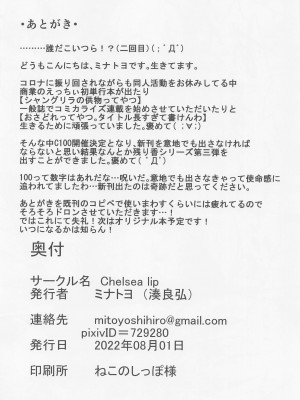 ・あとがき・
………誰だこいつら！？(二回目)(；ﾟДﾟ)
どうもこんにちは、ミナトヨです。生きてます。
コロナに振り回されながらも同人活動をお休みしてる中
商業のえっちぃ初単行本が出たり
【シャングリラの供物ってやつ】
一般誌でコミカライズ連載を始めさせていただいたりと
【おさどれってやつ。タイトル長すぎて書けんわ】
生きるために頑張っていました。褒めて(；∀；)
そんな中C100開催決定となり、新刊を意地でも出さなければ
ならないと思い結果なんとか残り香シリーズ第三弾を
出すことができました。褒めて(ﾟДﾟ)
100って数字はあれだな…呪いだ。意地でも出さなきゃって使命感に
追われてましたわ…新刊出たのは奇跡だと思ってください。
あとがきを既刊のコピペで使いまわすくらいには疲れてるので
そろそろドロンさせていただきます…！
ではこれにて失礼！次はオリジナル本予定です！
いつになるかは知らん！
奥付
サークル名 Chelsea lip
発行者 ミナトヨ（湊良弘）
連絡先 mitoyoshihiro@gmail.com
pixivID＝729280
発行日 2022年08月01日
印刷所 ねこのしっぽ様